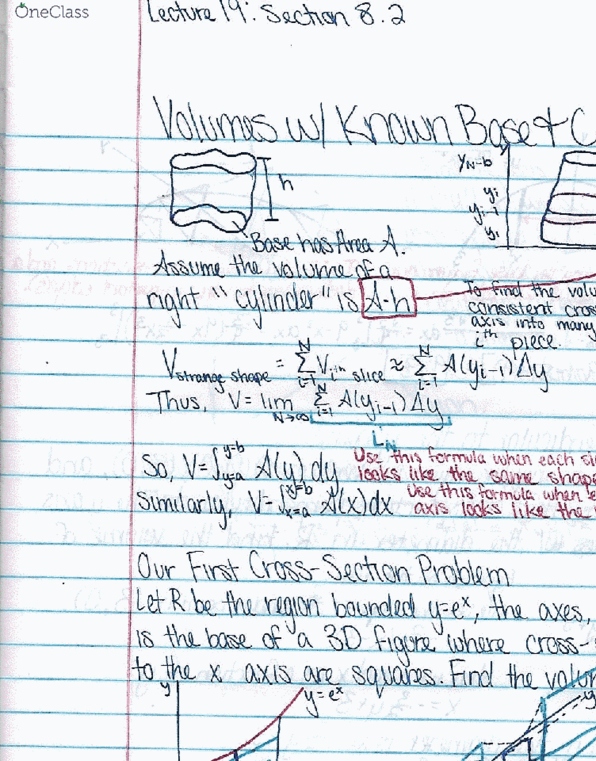 OneClass
Lecture 19: Section 8.2
Volumes w/ Known Base + C
h
Base has Area A.
yN=b
yi
yi-1
y1
Assume the volume of a
right "cylinder" is A·h
To find the volu
consistent cros
axis into many
ith piece.
Vstrange shape = Σ(i=1 to N) Vith slice ≈ Σ(i=1 to N) A(yi-1) Δy
Thus, V = lim N→∞ Σ(i=1 to N) A(yi-1) Δy
LN
So, V = ∫(y=a to y=b) A(y) dy
Use this formula when each sli
looks like the same shape
Similarly, V = ∫(x=a to x=b) A(x) dx
Use this formula when
axis looks like the
Our First Cross-Section Problem
Let R be the region bounded y=e^x, the axes,
is the base of a 3D figure where cross-
to the x axis are squares. Find the volu
y
y=e^x
y